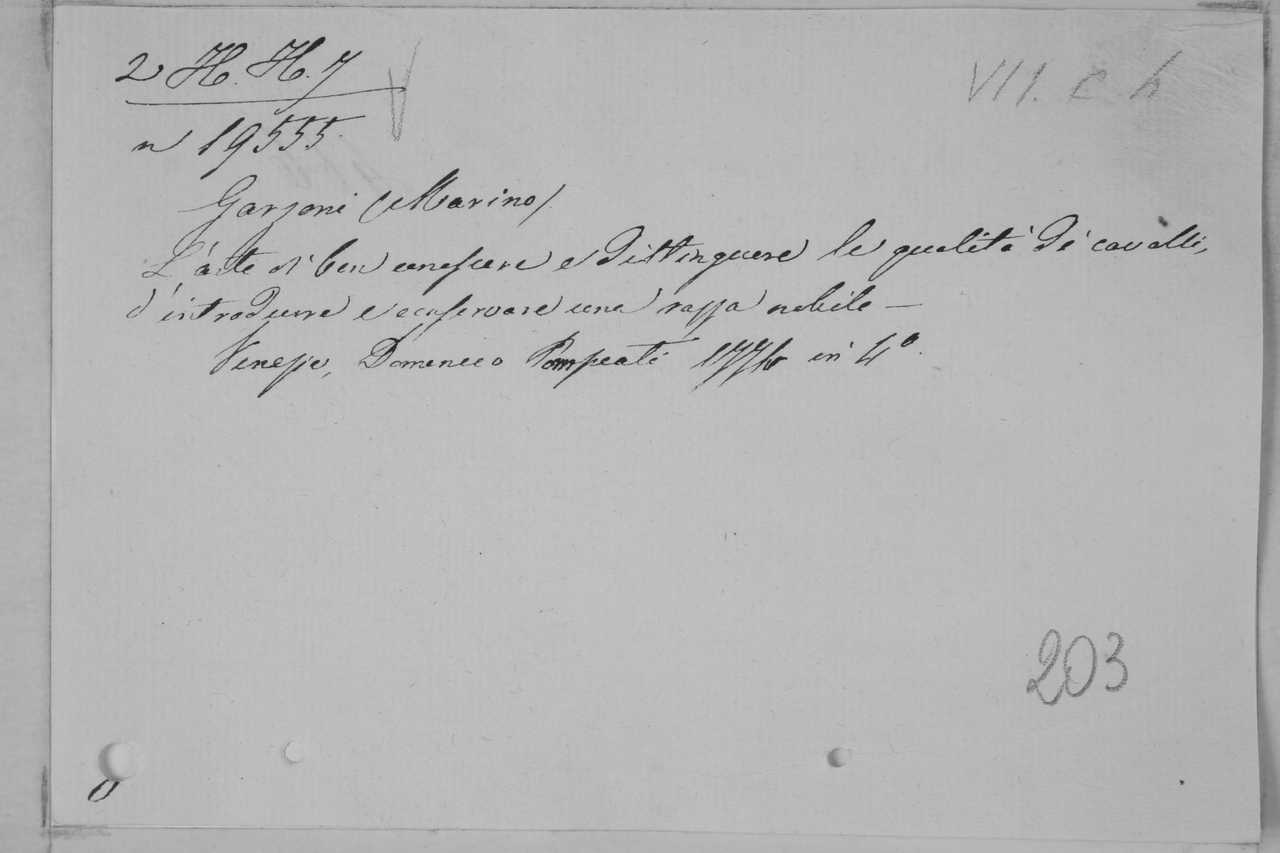 2 H. H. 7
VII. c. h
n 19555.
Garzoni (Marino)
L'arte di ben conoscere e distinguere le qualità de' cavalli,
d'introdurre e conservare una razza nobile —
Venezia, Domenico Pompeati 1776 in 4°.
203